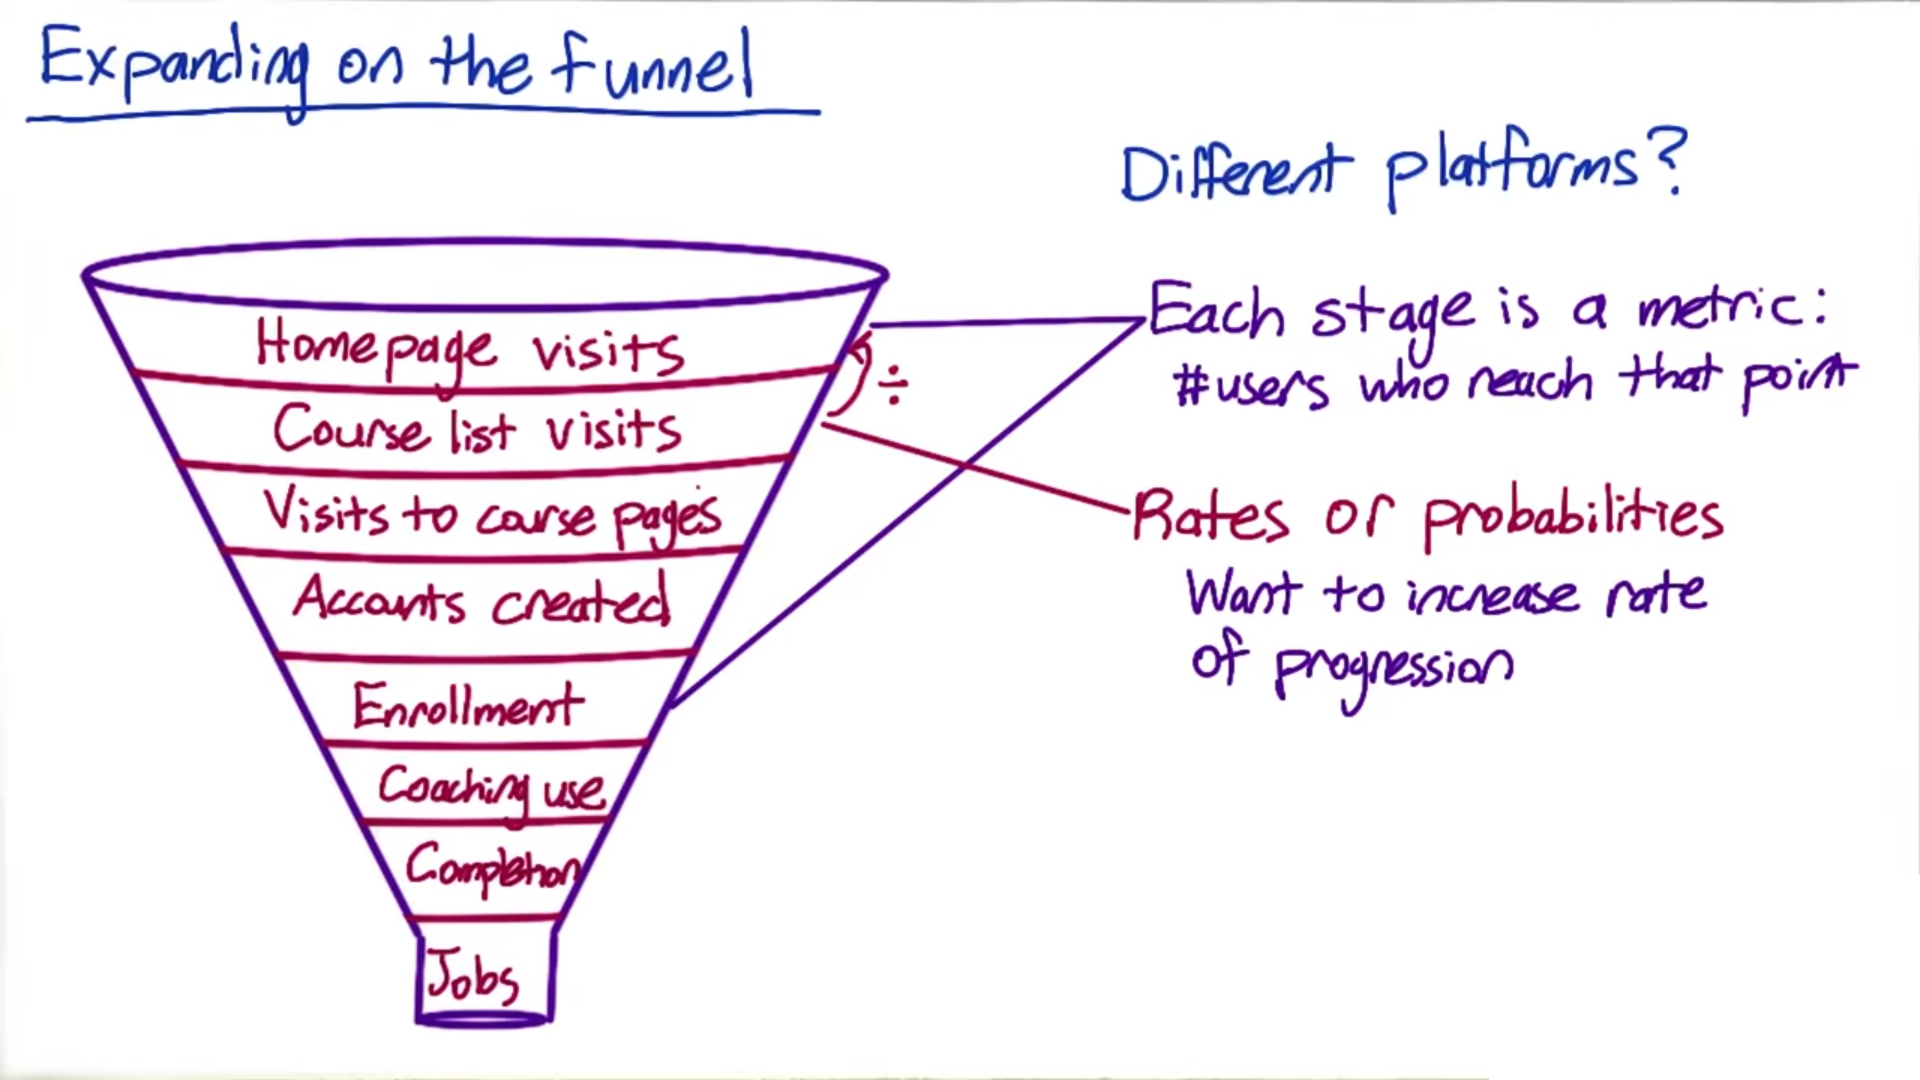 Expanding on the funnel
Different platforms?
Homepage visits
Course list visits
Visits to course pages
Accounts created
Enrollment
Coaching use
Completion
Jobs
÷
Each stage is a metric:
#users who reach that point
Rates or probabilities
Want to increase rate
of progression